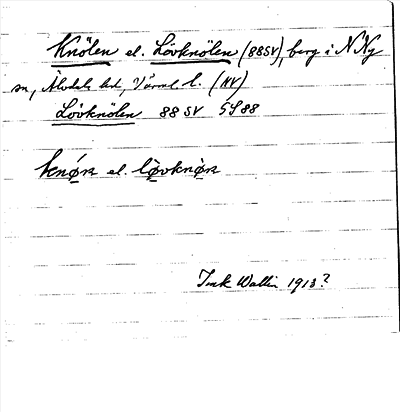 Knölen el. Lövknölen (88SV), berg i N Ny
sn, Älvdals hd, Värml. l. (NV)
Lövknölen 88 SV 5S88
knø̀n el. lø̀vknø̀n
Wallin 1913?